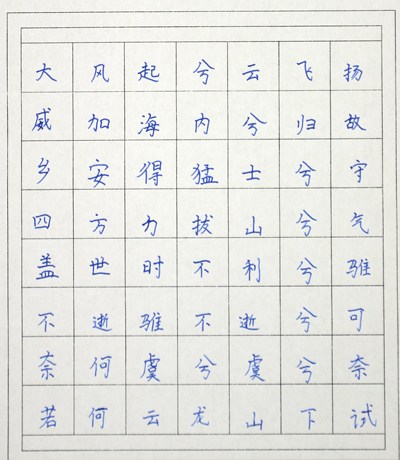 大风起兮云飞扬
威加海内兮归故
乡安得猛士兮守
四方力拔山兮气
盖世时不利兮骓
不逝骓不逝兮可
奈何虞兮虞兮奈
若何云龙山下试